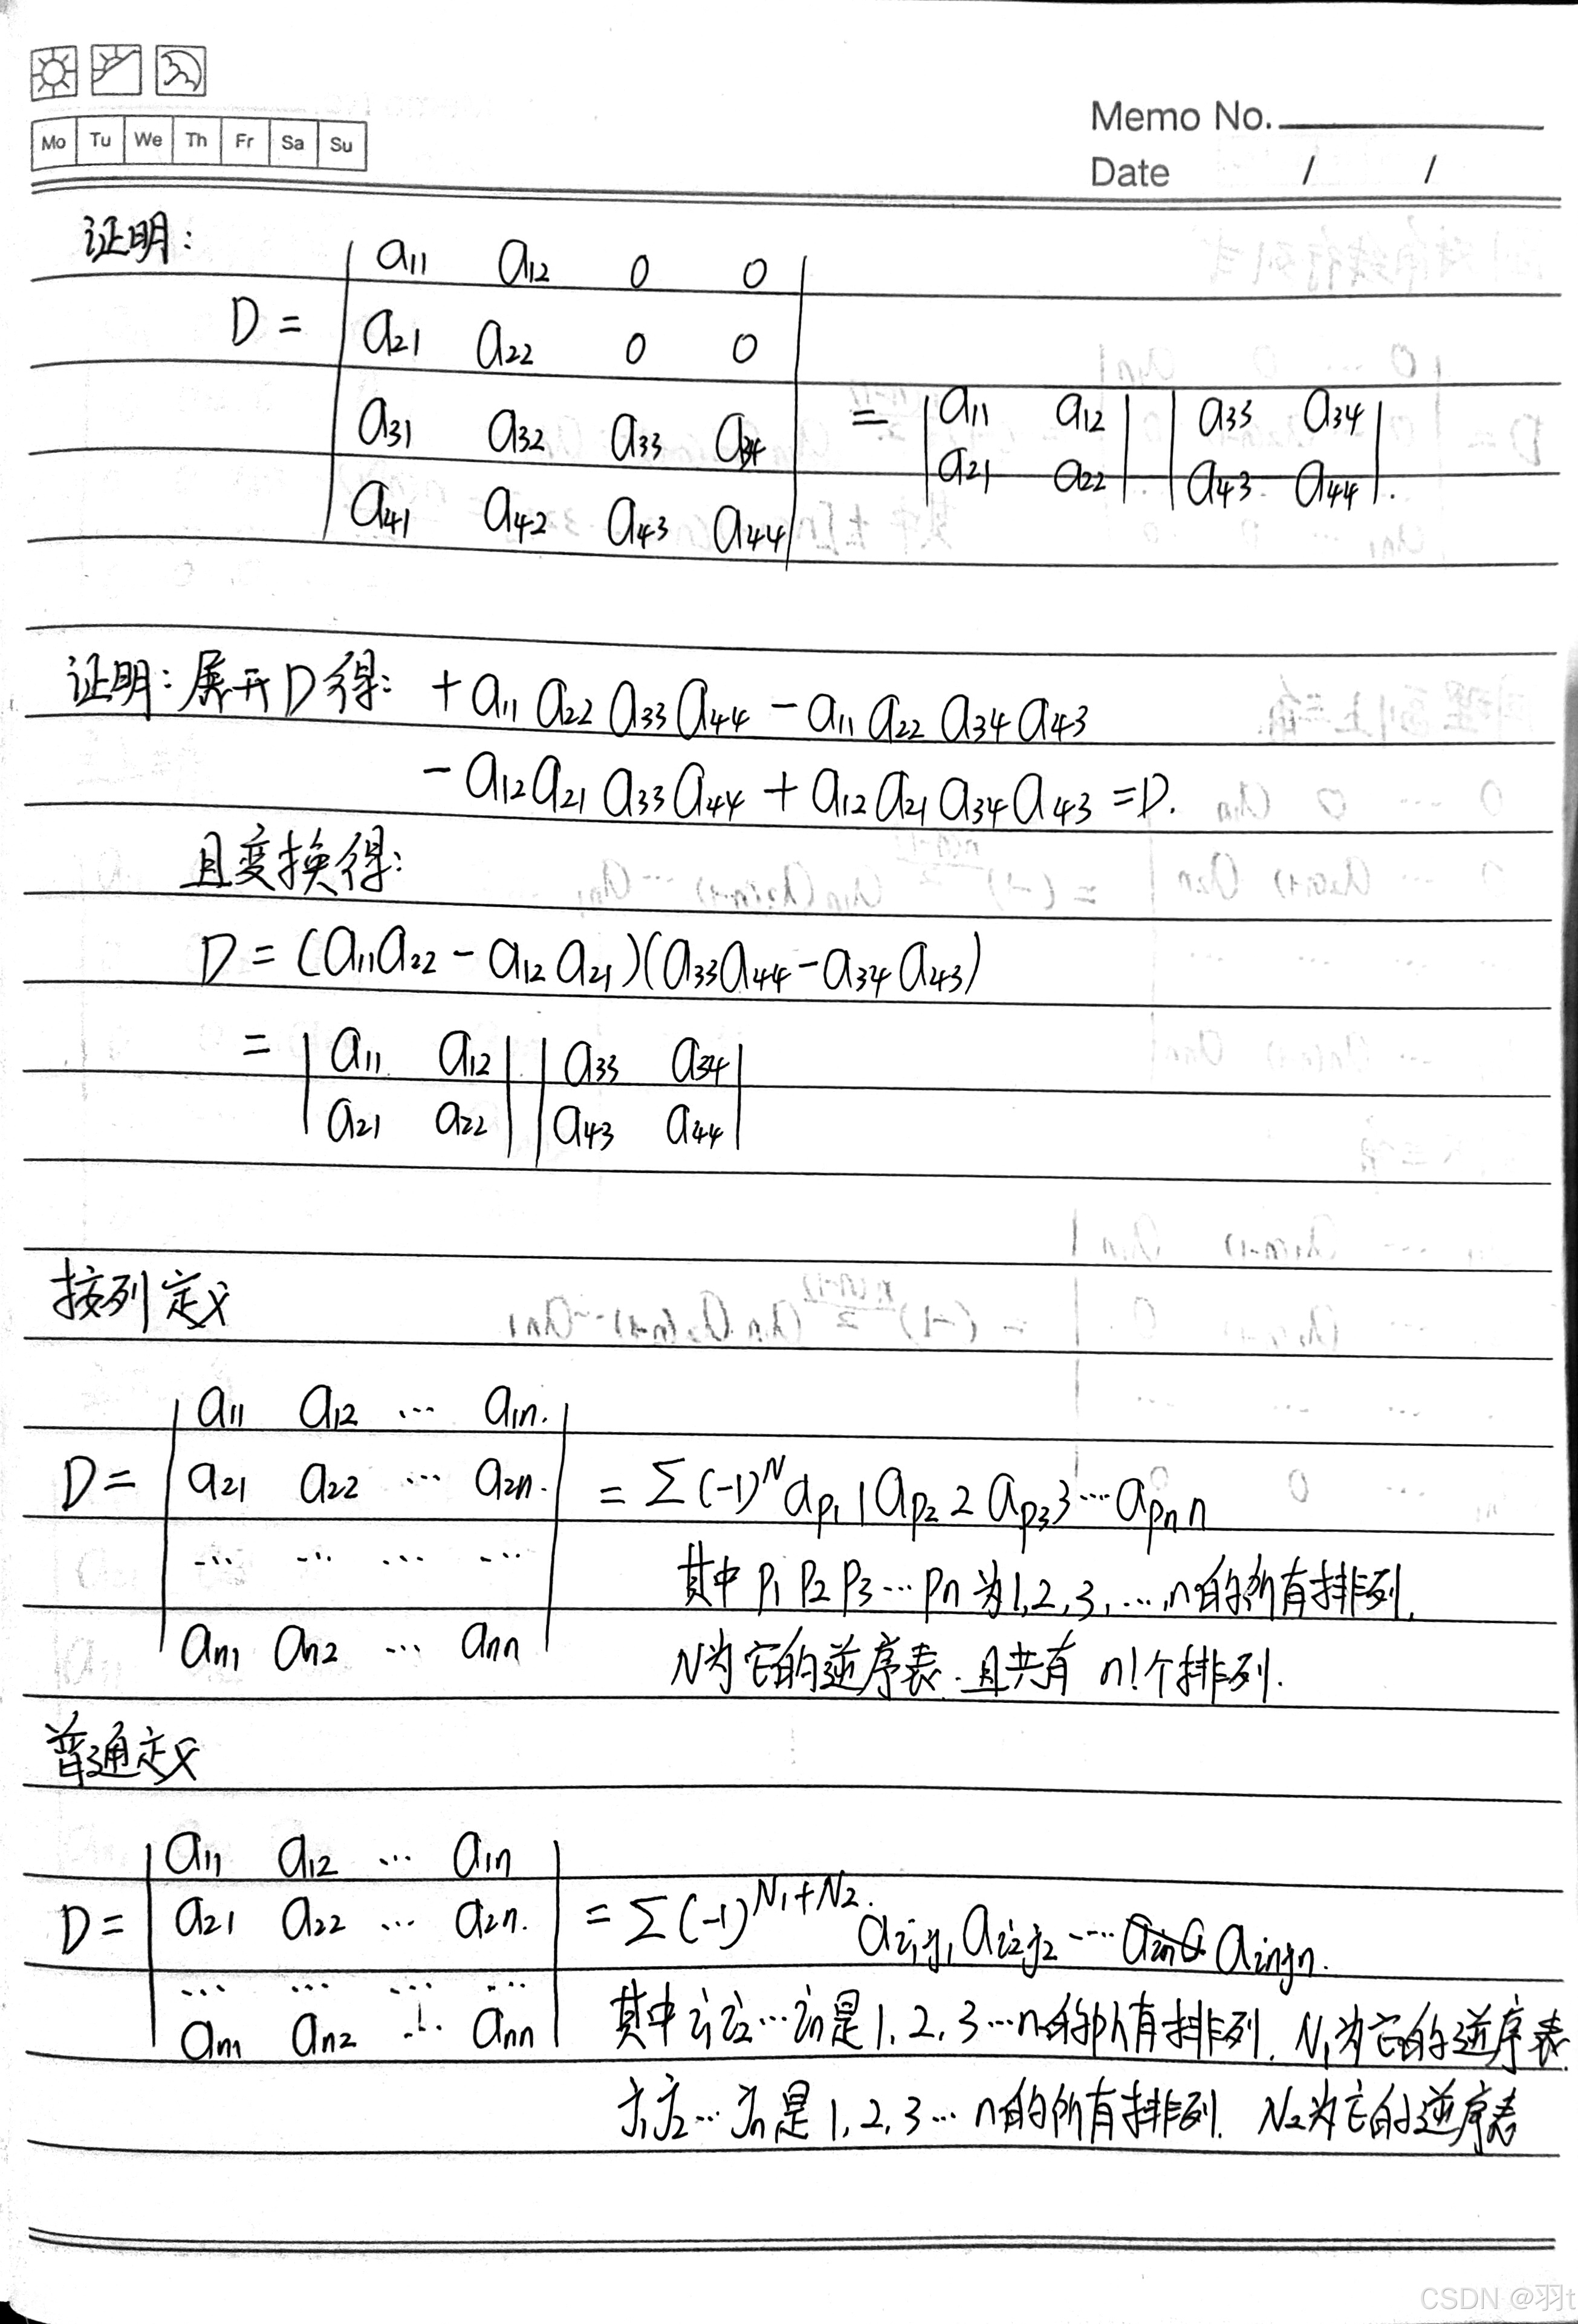 Mo Tu We Th Fr Sa Su
Memo No.
Date / /
证明:
D = | a₁₁ a₁₂ 0 0 |
| a₂₁ a₂₂ 0 0 |
| a₃₁ a₃₂ a₃₃ a₃₄ | = | a₁₁ a₁₂ | | a₃₃ a₃₄ |
| a₄₁ a₄₂ a₄₃ a₄₄ | | a₂₁ a₂₂ | | a₄₃ a₄₄ |.
证明:展开D得: +a₁₁a₂₂a₃₃a₄₄ - a₁₁a₂₂a₃₄a₄₃
-a₁₂a₂₁a₃₃a₄₄ + a₁₂a₂₁a₃₄a₄₃ = D.
且变换得:
D = (a₁₁a₂₂ - a₁₂a₂₁)(a₃₃a₄₄ - a₃₄a₄₃)
= | a₁₁ a₁₂ | | a₃₃ a₃₄ |
| a₂₁ a₂₂ | | a₄₃ a₄₄ |
按列定义
| a₁₁ a₁₂ ... a₁ₙ. |
D = | a₂₁ a₂₂ ... a₂ₙ. | = Σ(-1)ᴺ aₚ₁1 aₚ₂2 aₚ₃3 ... aₚₙn
... ... ... ... 其中 p₁ p₂ p₃...pₙ 为1,2,3,...,n的所有排列,
| aₙ₁ aₙ₂ ... aₙₙ | N为它的逆序表.且共有 n!个排列.
普通定义
| a₁₁ a₁₂ ... a₁ₙ |
D = | a₂₁ a₂₂ ... a₂ₙ. | = Σ(-1)^{N₁+N₂}. a_{i₁j₁} a_{i₂j₂} ... a_{iₙjₙ}.
... ... ... ...
| aₙ₁ aₙ₂ ... aₙₙ | 其中i₁i₂...iₙ是1,2,3...n的所有排列. N₁为它的逆序表.
j₁j₂...jₙ是1,2,3...n的所有排列. N₂为它的逆序表
CSDN @羽t